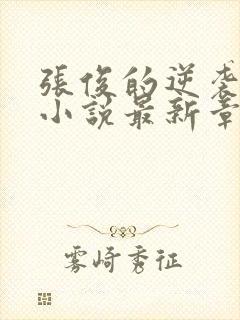 張俊的逆袭
小說最新章
雾崎秀征